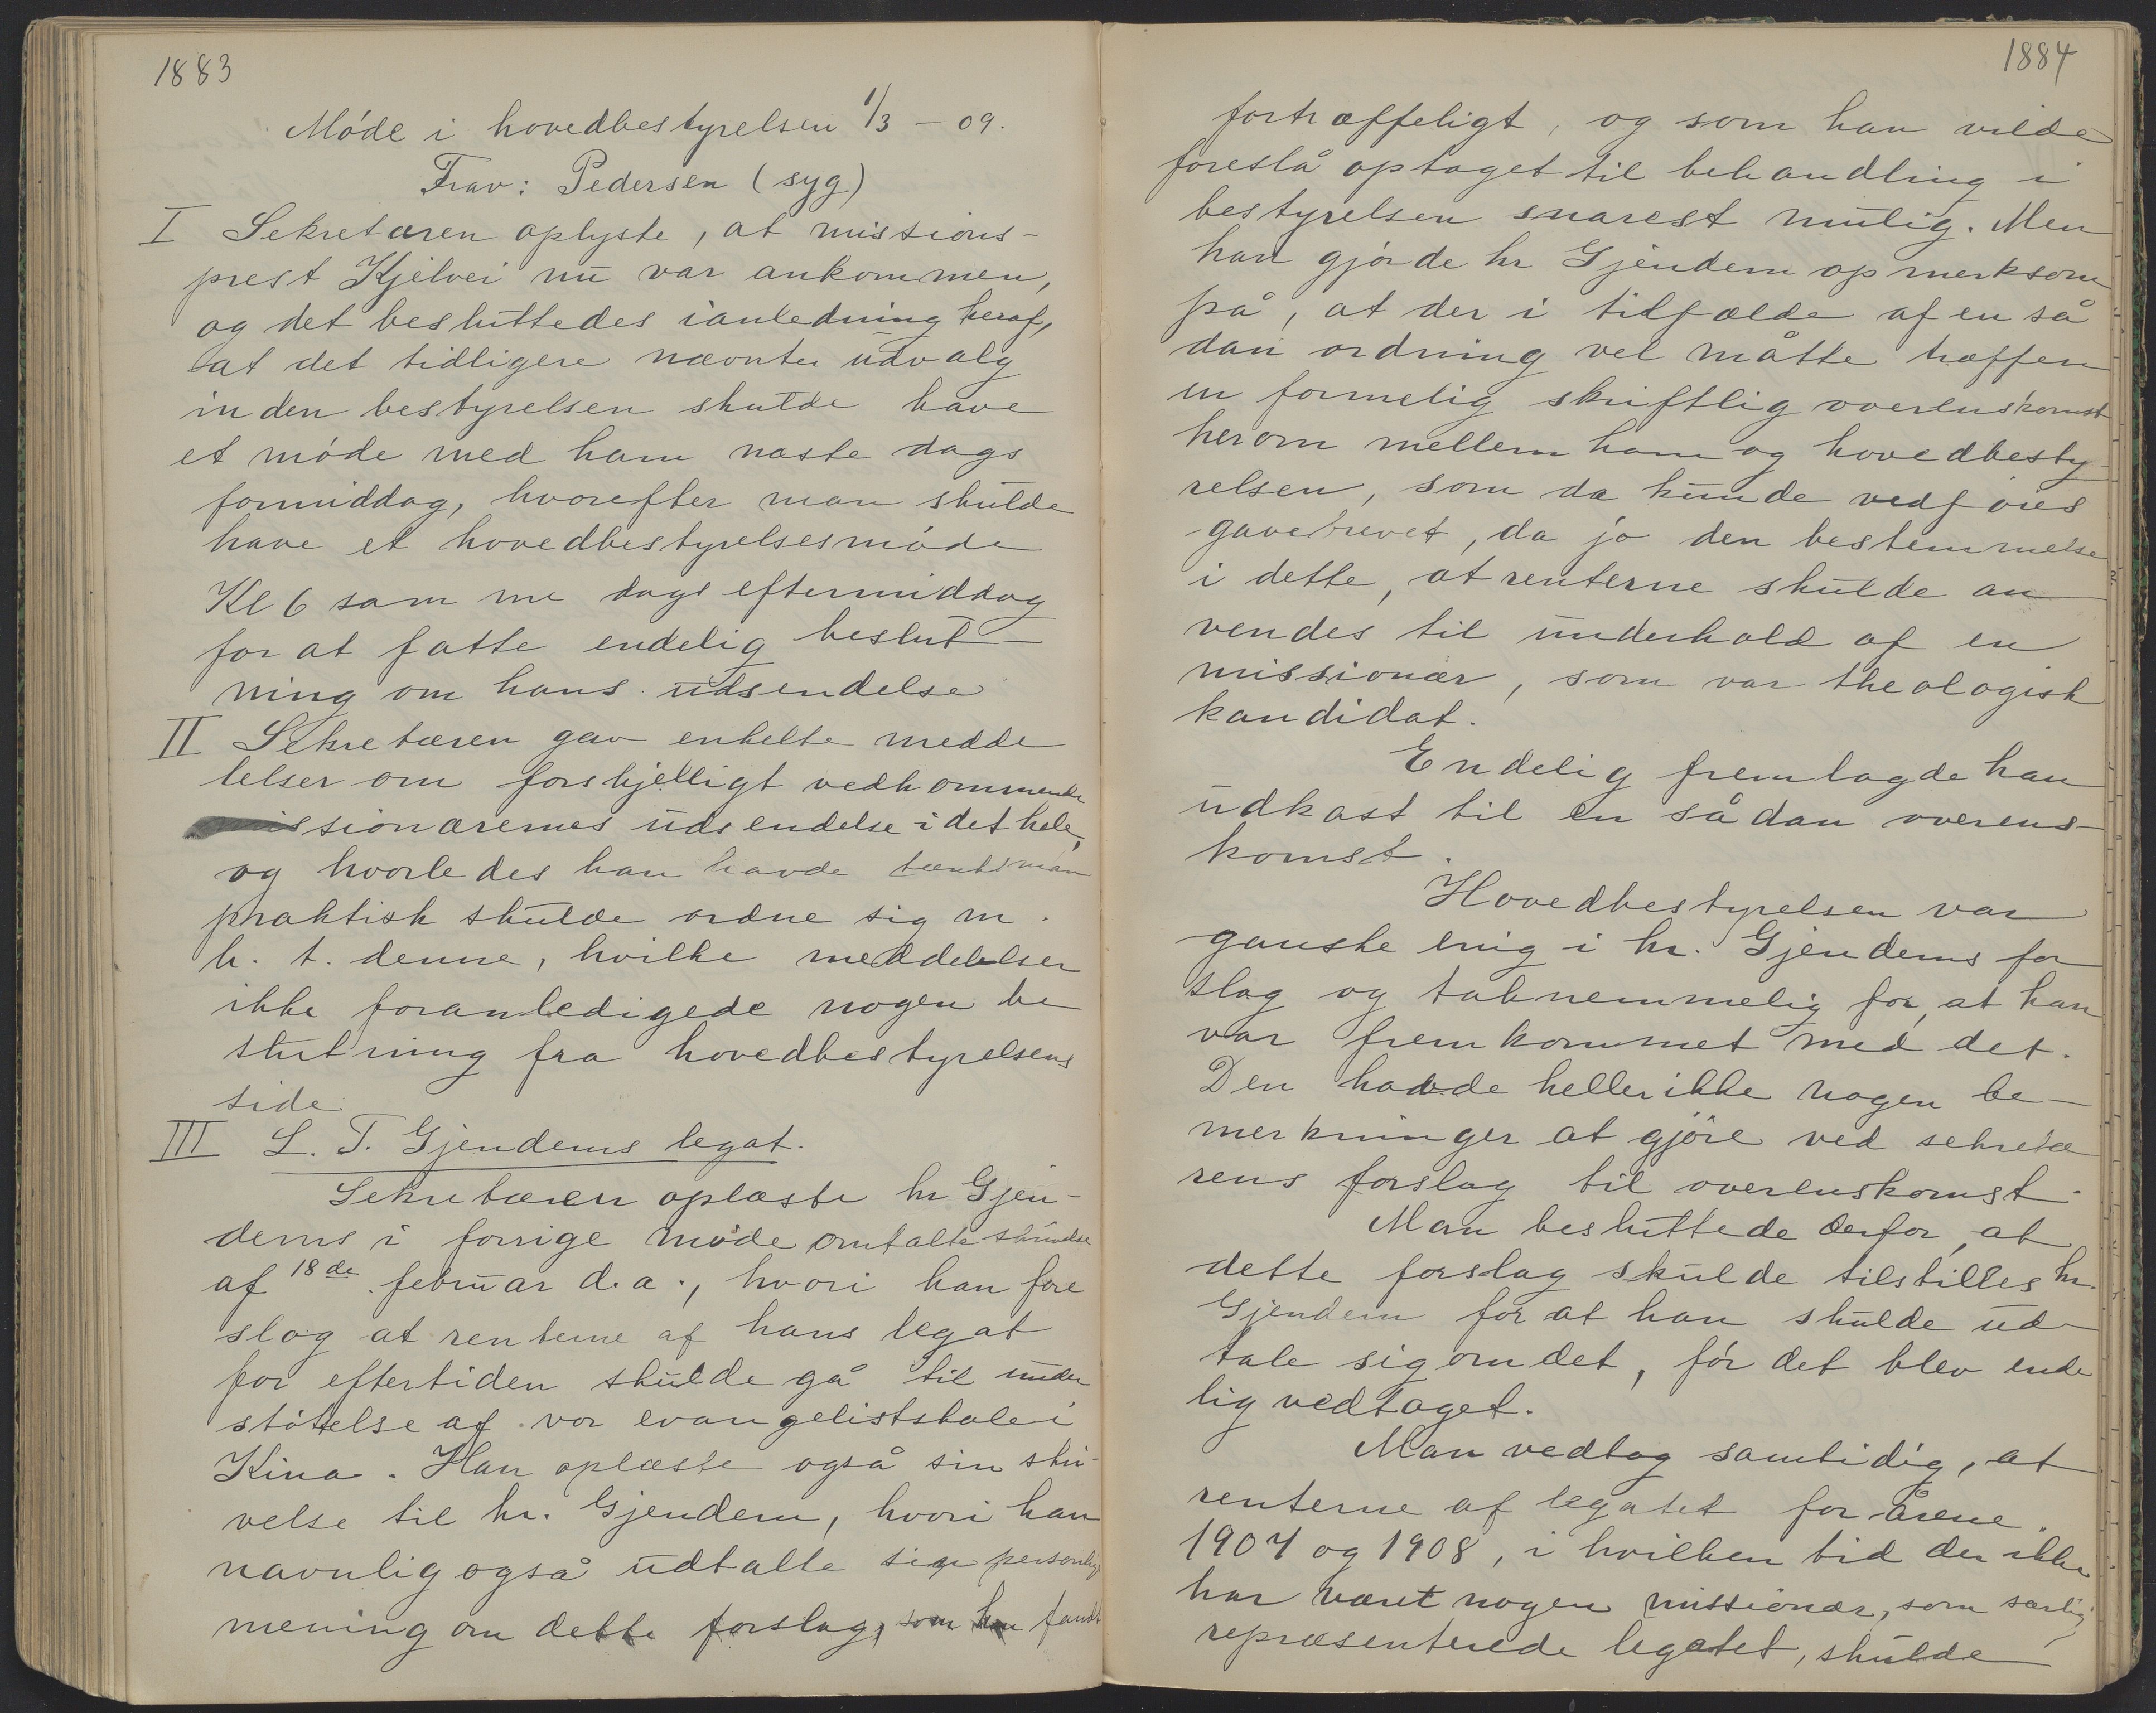 1883
Møde i hovedbestyrelsen 1/3 - 09.
Frav: Pedersen (syg)
I Sekretæren oplyste, at missions-
prest Kjelvei nu var ankommen,
og det besluttedes ianledning heraf,
at det tidligere nævnte udvalg
inden bestyrelsen skulde have
et møde med ham næste dags
formiddag, hvorefter man skulde
have et hovedbestyrelsesmøde
Kl 6 sam me dags eftermiddag
for at fatte endelig beslut-
ning om hans udsendelse
II Sekretæren gav enkelte medde
lelser om forskjelligt vedkommende
missionærernes udsendelse i det hele,
og hvorledes han havde tænkt man
praktisk skulde ordne sig m.
h. t. denne, hvilke meddelelser
ikke foranledigede nogen be
slutning fra hovedbestyrelsens
side.
III L. T. Gjendems legat.
Sekretæren oplæste hr Gjen-
dems i forrige møde omtalte skrivelse
af 18de februar d.a., hvori han fore
slog at renterne af hans legat
for eftertiden skulde gå til under
støttelse af vor evangelistskole i
Kina. Han oplæste også sin skri-
velse til hr. Gjendem, hvori han
navnlig også udtalte sin personlige
mening om dette forslag, som han fandt
1884
fortræffeligt, og som han vilde
foreslå optaget til behandling i
bestyrelsen snarest mulig. Men
han gjorde hr Gjendem opmerksom
på, at der i tilfælde af en så
dan ordning vel måtte træffes
en formelig skriftlig overenskomst
herom mellem ham og hovedbesty
relsen, som da kunde vedføies
gavebrevet, da jo den bestemmelse
i dette, at renterne skulde an
vendes til underhold af en
missionær, som var theologisk
kandidat.
Endelig fremlagde han
udkast til en sådan overens-
komst.
Hovedbestyrelsen var
ganske enig i hr. Gjendems for
slag og taknemmelig for, at han
var fremkommet med det.
Den havde heller ikke nogen be-
merkninger at gjøre ved sekretæ
rens forslag til overenskomst.
Man besluttede derfor, at
dette forslag skulde tilstilles hr.
Gjendem for at han skulde ud-
tale sig om det, før det blev ende
lig vedtaget.
Man vedtog samtidig, at
renterne af legatet for årene
1907 og 1908, i hvilken tid der ikke
har været nogen missionær, som særlig
repræsenterede legatet, skulde